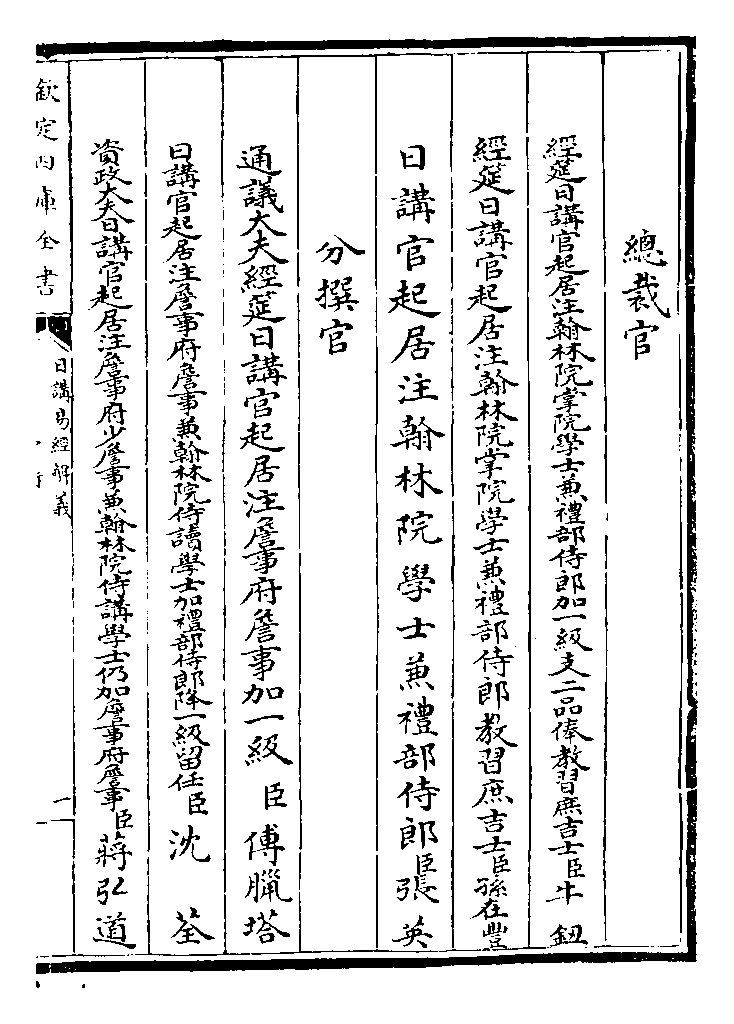 總裁官
經筵日講官起居注翰林院掌院學士兼禮部侍郎加一級支二品俸教習庶吉士臣牛鈕
經筵日講官起居注翰林院掌院學士兼禮部侍郎教習庶吉士臣孫在豐
日講官起居注翰林院學士兼禮部侍郎臣張英
分撰官
通議大夫經筵日講官起居注詹事府詹事加一級臣傅臘塔
日講官起居注詹事府詹事兼翰林院侍讀學士加禮部侍郎降一級留任臣沈荃
資政大夫日講官起居注詹事府少詹事兼翰林院侍講學士仍加詹事府詹事臣蔣弘道
欽定四庫全書
日講易經解義
一